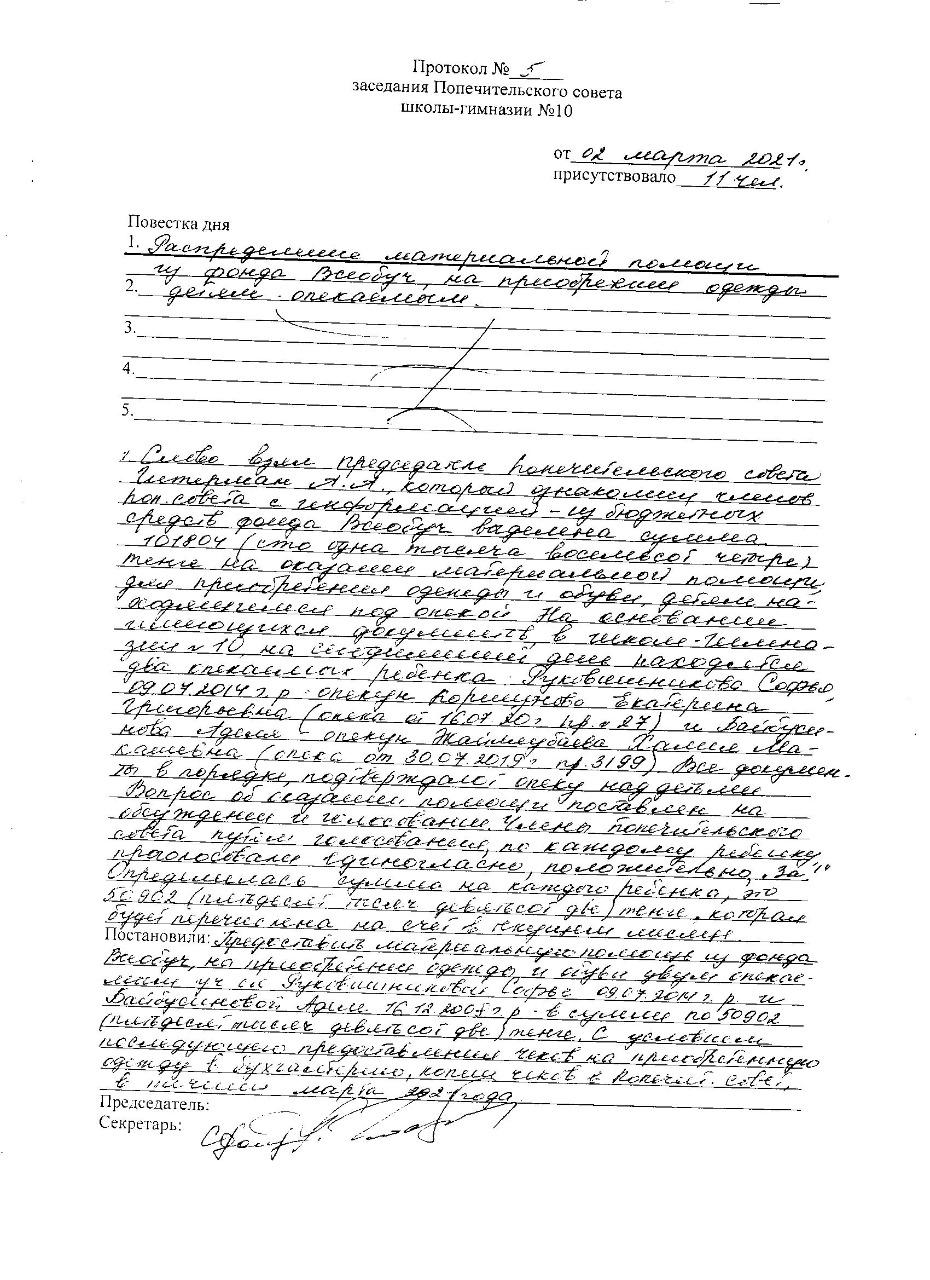 Протокол № 5
заседания Попечительского совета
школы-гимназии №10
от 02 марта 2021г.
присутствовало 11 чел.
Повестка дня
1. Распределение материальной помощи
из фонда Всеобуч, на приобретение одежды
2. детям опекаемым.
3.
4.
5.
1. Слово взял председатель попечительского совета
А.А., который ознакомил членов
поп.совета с информацией - из бюджетных
средств фонда Всеобуч выделена сумма
101804 (сто одна тысяча восемьсот четыре)
тенге на оказание материальной помощи,
для приобретения одежды и обуви, детям на-
ходящимся под опекой. На основании
имеющихся документов, в школе-гимна-
зии №10 на сегодняшний день находятся
два опекаемых ребенка. Рукавишникова Софья,
09.07.2014 г.р - опекун Коршунова Екатерина
Григорьевна (опека от 16.07.20г пр.№27) и Байбуси-
нова Аделя - опекун Халия Ма-
кашевна (опека от 30.07.2019г пр.3199) Все докумен-
ты в порядке, подтверждают опеку над детьми.
Вопрос об оказании помощи поставлен на
обсуждение и голосование. Члены попечительского
совета путём голосования, по каждому ребенку,
проголосовали единогласно, положительно „За!"
Определилась сумма на каждого ребенка, это
50902 (пятьдесят тысяч девятьсот две) тенге, которая
будет перечислена на счёт в текущем месяце.
Постановили: Предоставить материальную помощь из фонда
Всеобуч, на приобретение одежды и обуви двум опекае-
мым уч-ся Рукавишниковой Софье 09.07.2014г.р. и
Байбусиновой Аделе 16.12.2007г.р - в сумме по 50902
(пятьдесят тысяч девятьсот две) тенге. С условием
последующего предоставления чеков на приобретенную
одежду в бухгалтерию, копии чеков в попечит. совет,
в течении марта 2021 года.
Председатель:
Секретарь: